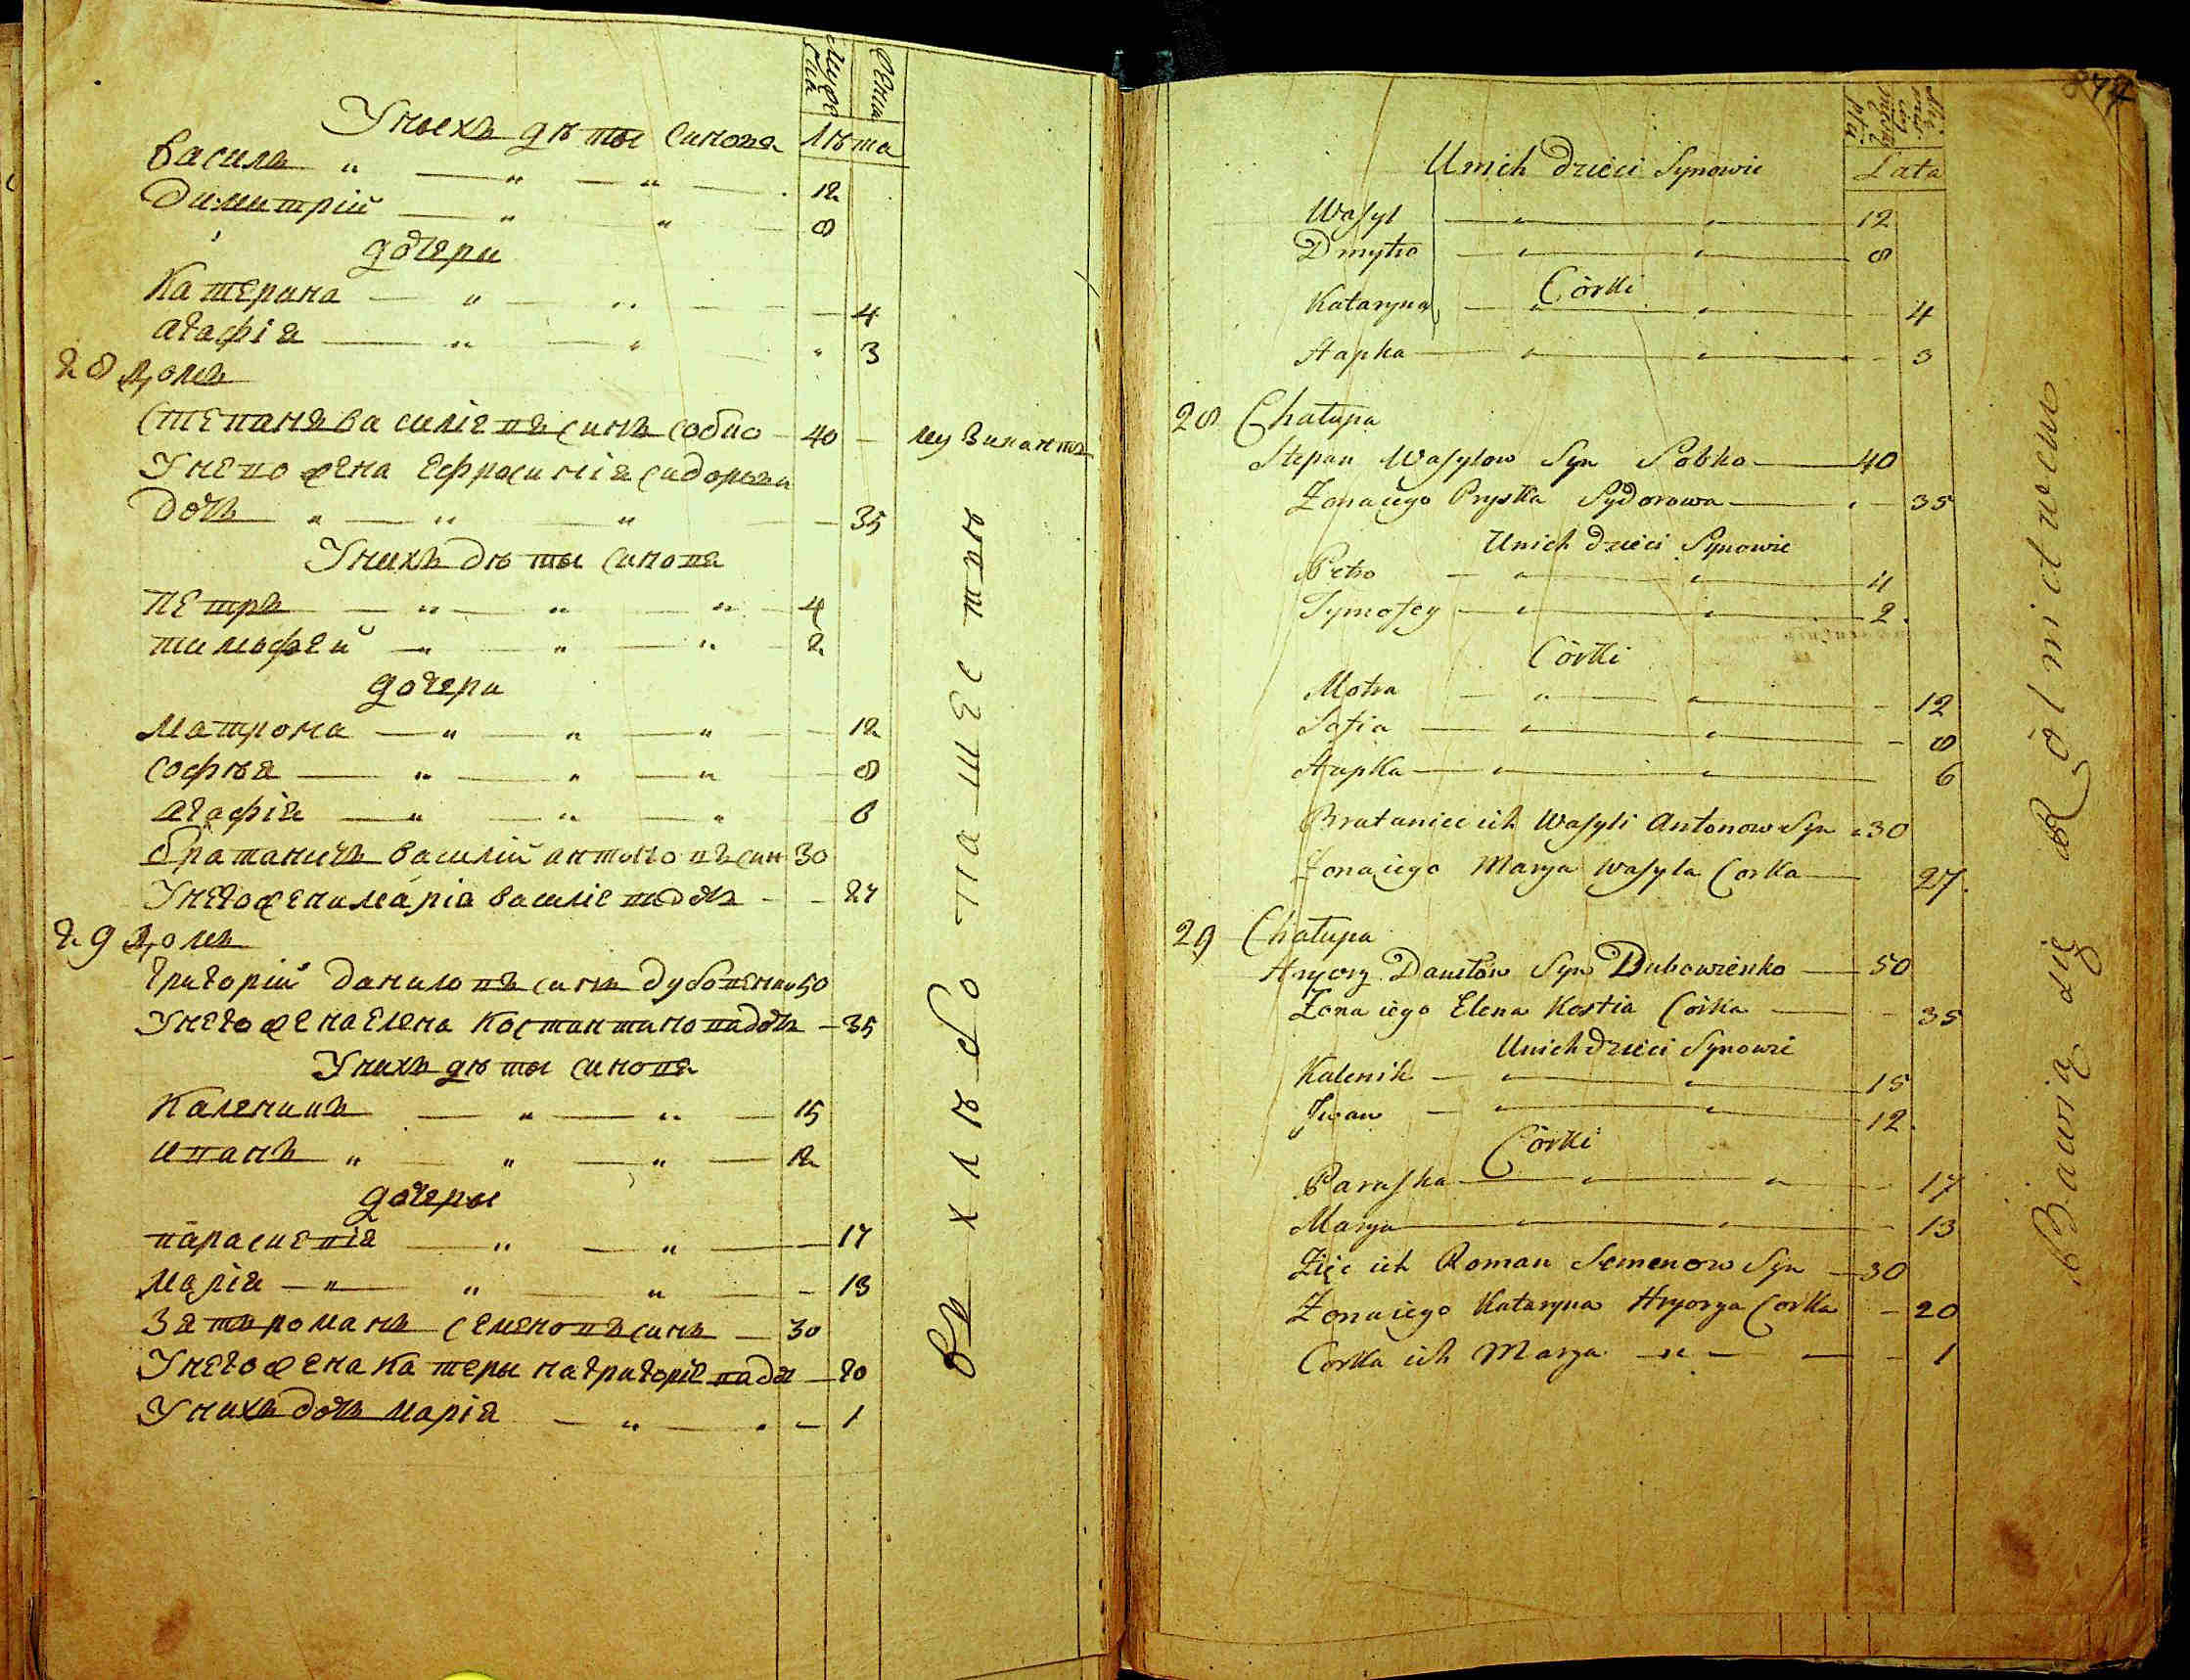 Мужес
кій
Жена
Лѣта
Унихъ дѣты синовя
Василь 12
Димитрій 8
дочери
Катерина 4
агафія 3
28 домъ
Степанъ василіевъ синъ собко 40 музикантъ
Унего жена Ефросинія сидорова
дочь 35
Унихъ дѣты синовя
петръ 4
тимофей 2
дочери
матрона 12
софѣя 8
агафія 6
братаничъ василий антоновъ син 30
Унего жена марія василіева дочь 27
29 домъ
григорій данилов синъ дубовенко 50
Унего жена Елена костантинова дочь 35
Унихъ дѣты синовя
каленикъ 15
иванъ 12
дочеры
парасцевія 17
марія 13
Зять романъ семеновъ синъ 30
Унего жена катерына григоріева доч 20
Унихъ дочь марія 1
въ хлѣбопашествѣ
874
Lata
Unich dzieci Synowie
Wasyl 12
Dmytro 8
Córki
Kataryna 4
Hapka 3
28 Chałupa
Stepan Wasylow Syn Sobko 40
Zona iego Prystka Sydorowa 35
Unich dzieci Synowie
Petro 4
Tymofey 2
Córki
Motra 12
Sofia 8
Hapka 6
Brataniec ich Wasyli Antonow Syn 30
Zona iego Marya Wasyla Corka 27
29 Chałupa
Hryory Daniłow Syn Dubowienko 50
Zona iego Elena Kostia Córka 35
Unich dzieci Synowie
Kalenik 15
Jwan 12
Córki
Paraska 17
Marya 13
Zięc ich Roman Semenow Syn 30
Zona iego Kataryna Hryorya Corka 20
Corka ich Marya 1
Bawią się Rolnictwem